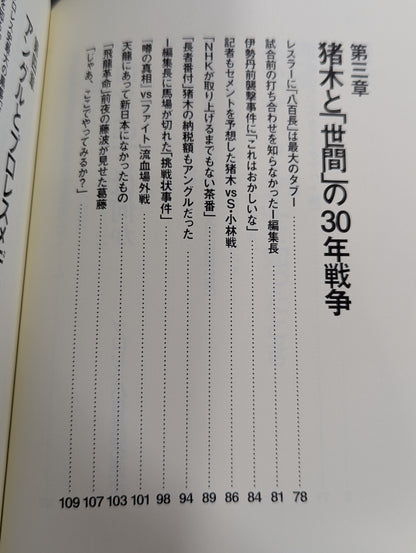 第三章
猪木と「世間」の30年戦争
レスラーに「八百長」は最大のタブー 78
試合前の打ち合わせを知らなかったI編集長 81
伊勢丹前襲撃事件に「これはおかしいな」 84
記者もセメントを予想した猪木vsS・小林戦 86
「NHKが取り上げるまでもない茶番」 89
「長者番付」猪木の納税額もアングルだった 94
I編集長に馬場が切れた「挑戦状事件」 98
『噂の真相』vs『ファイト』流血場外戦 101
天龍にあって新日本になかったもの 103
「飛龍革命」前夜の藤波が見せた葛藤 107
「じゃあ、ここでやってみるか?」 109